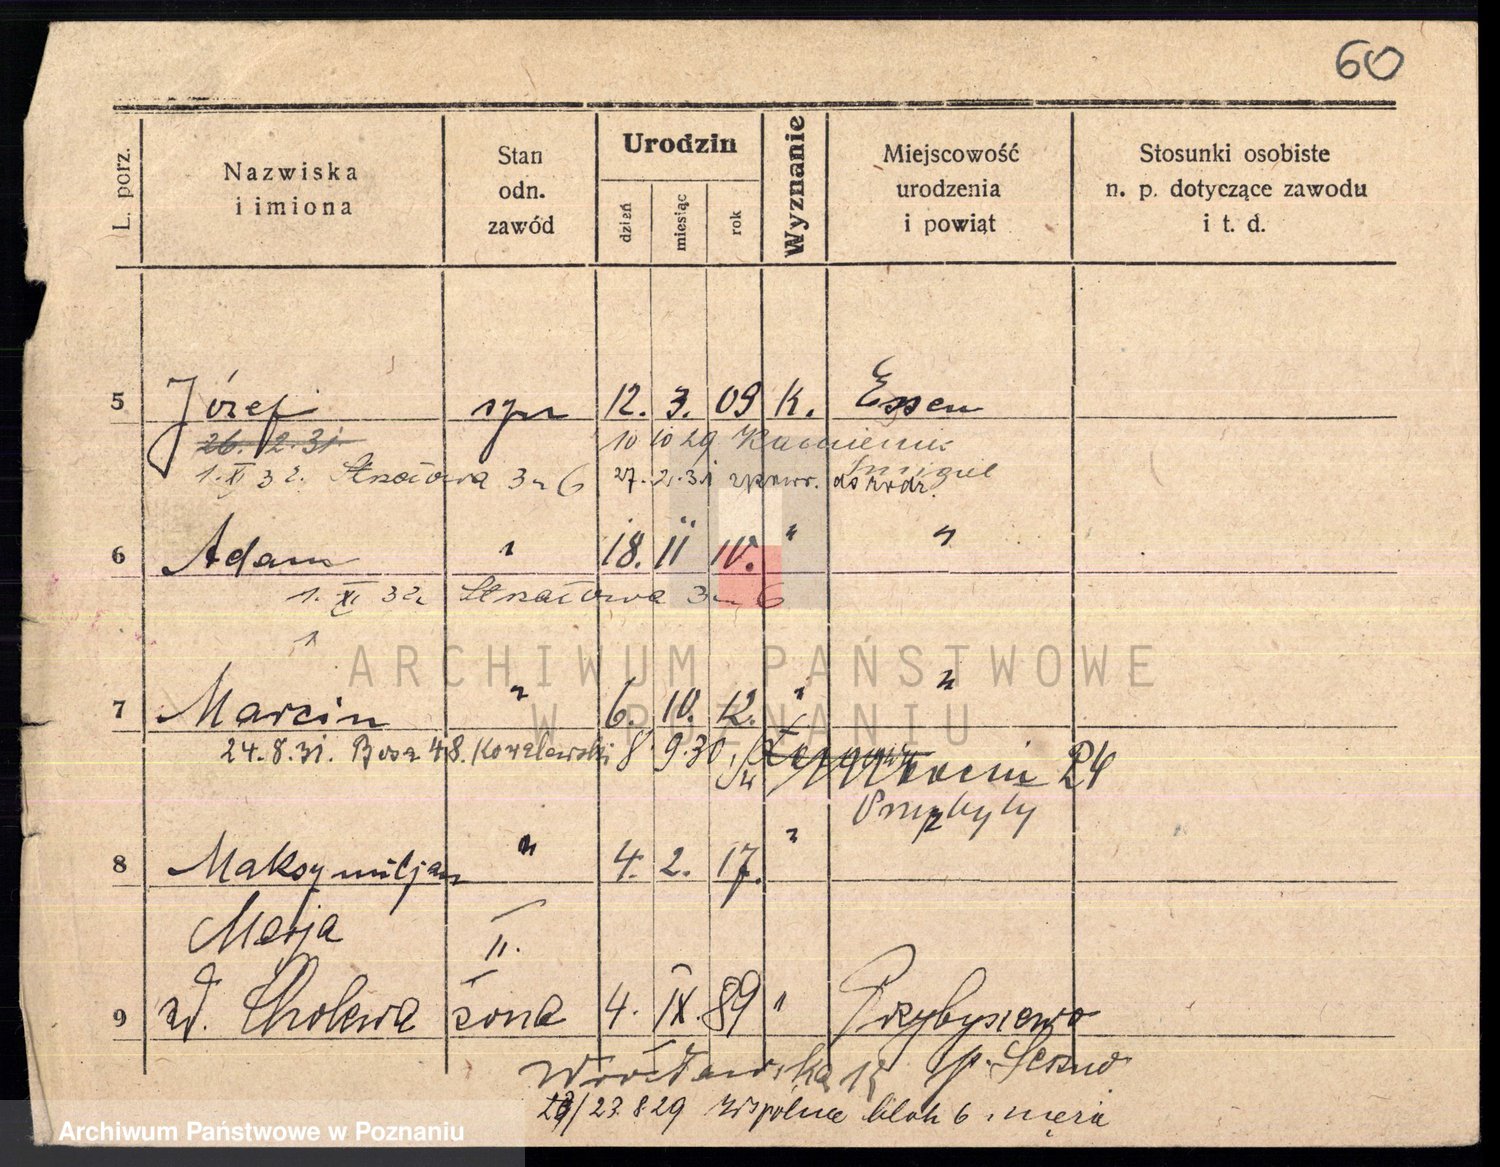 60
L. porz.
Nazwiska
i imiona
Stan
odn.
zawód
Urodzin
dzień
miesiąc
rok
Wyznanie
Miejscowość
urodzenia
i powiąt
Stosunki osobiste
n. p. dotyczące zawodu
i t. d.
5 Józef syn 12. 3. 09 K. Essen
26. 2. 31 10 10 29
1. XI 32. Strzałowa 3 m 6 27. 2. 31
6 Adam " 18. 11 10. " "
1. XI 32 Strzałowa 3 m 6
ARCHIWUM PAŃSTWOWE
W POZNANIU
7 Marcin " 6. 10. 12. " "
24. 8. 31. 48. Kowalewski 8. 9. 30 24
Przybyły
8 Maksymiljan " 4. 2. 17. "
Marja II.
9 zd. Cholewa żona 4. IX. 89 " Przybyszewo
Wrocławska
23.8.29 Wspólna blok 6 męża
Archiwum Państwowe w Poznaniu